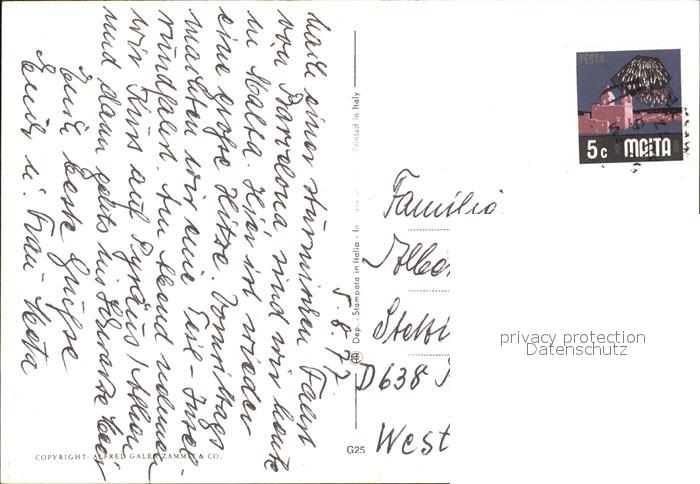 5.8.77
Nach einer stürmischen Fahrt
von Barcelona sind wir heute
in Malta. Hier ist wieder
eine große Hitze. Vormittags
machten wir eine Teil-Insel-
rundfahrt. Am Abend nehmen
wir Kurs auf Pyräus/Athen
und dann gehts ins Schwarze Meer
Euch beste Grüße
u. Frau Meta
Familie
Stett
D638
West
FESTA
5c MALTA
Printed in Italy
Dep. - Stampato in Italia
G25
COPYRIGHT: ALFRED GALEA ZAMMIT & CO.
privacy protection
Datenschutz